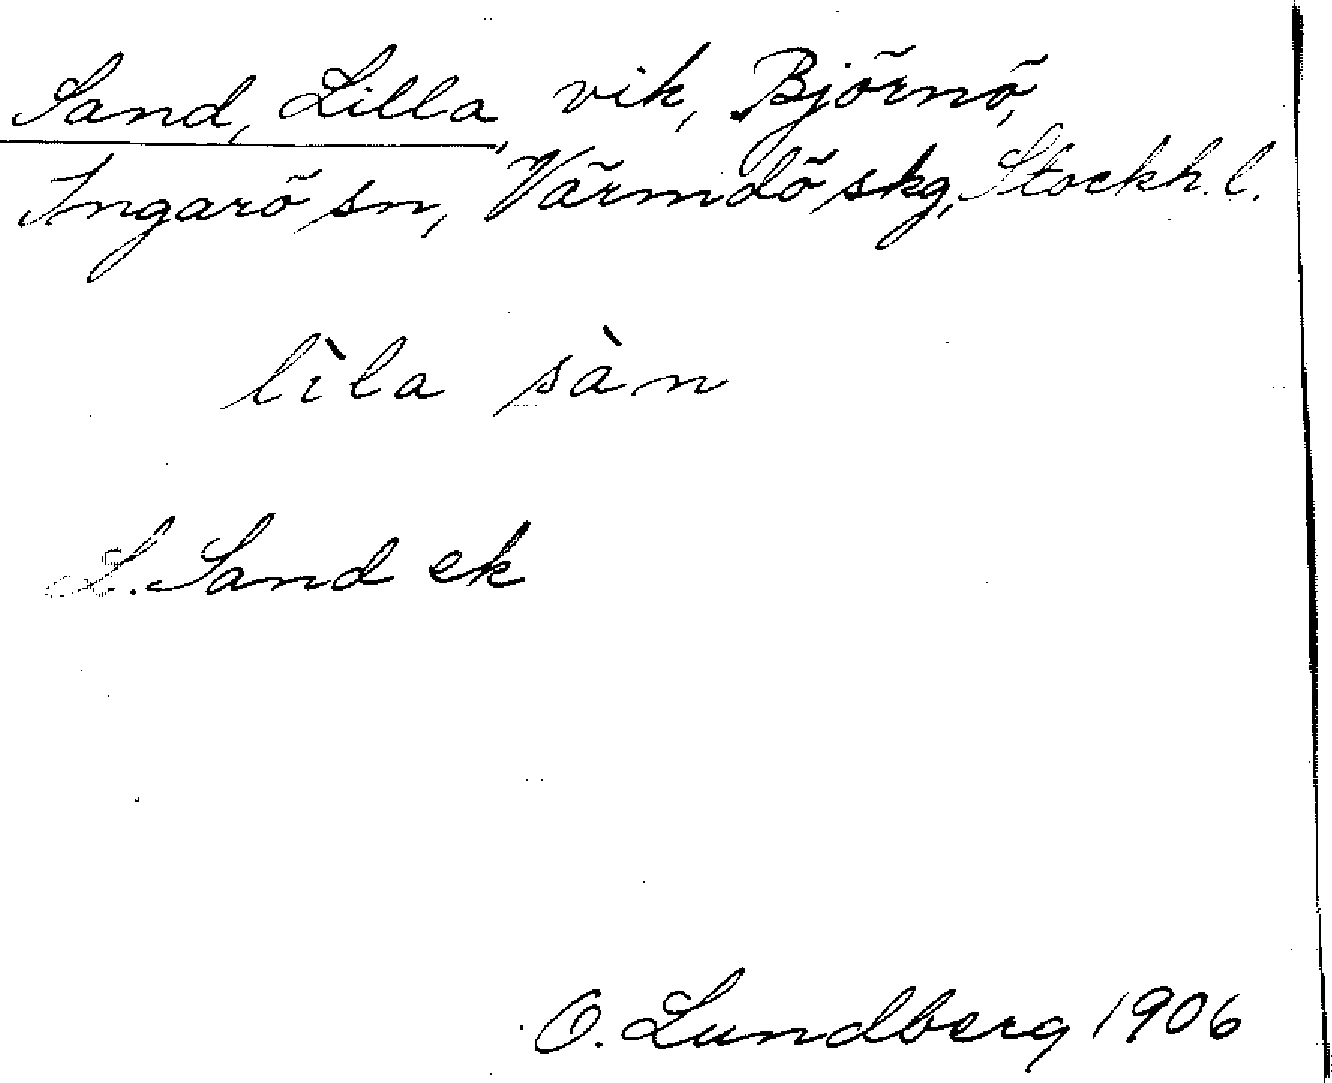 Sand, Lilla, vik, Björnö,
Ingarö sn, Värmdö skg, Stockh. l.
lìla sàn
L. Sand ek
O. Lundberg 1906